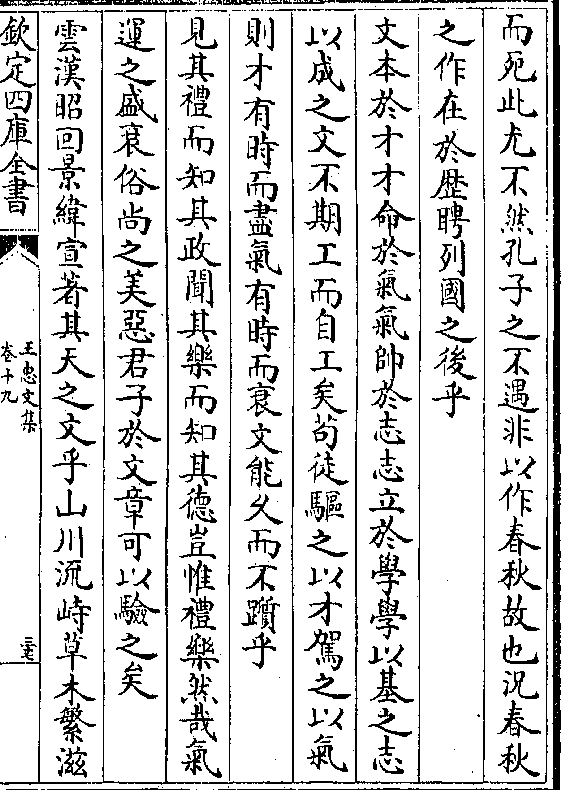 而死此尤不然孔子之不遇非以作春秋故也況春秋
之作在於歴聘列國之後乎
文本於才才命於氣氣帥於志志立於學學以基之志
以成之文不期工而自工矣茍徒驅之以才駕之以氣
則才有時而盡氣有時而衰文能乆而不躓乎
見其禮而知其政聞其樂而知其德豈惟禮樂然哉氣
運之盛衰俗尚之美惡君子於文章可以驗之矣
雲漢昭回景緯宣著其天之文乎山川流峙草木繁滋
欽定四庫全書
王忠文集
卷十九
三十七